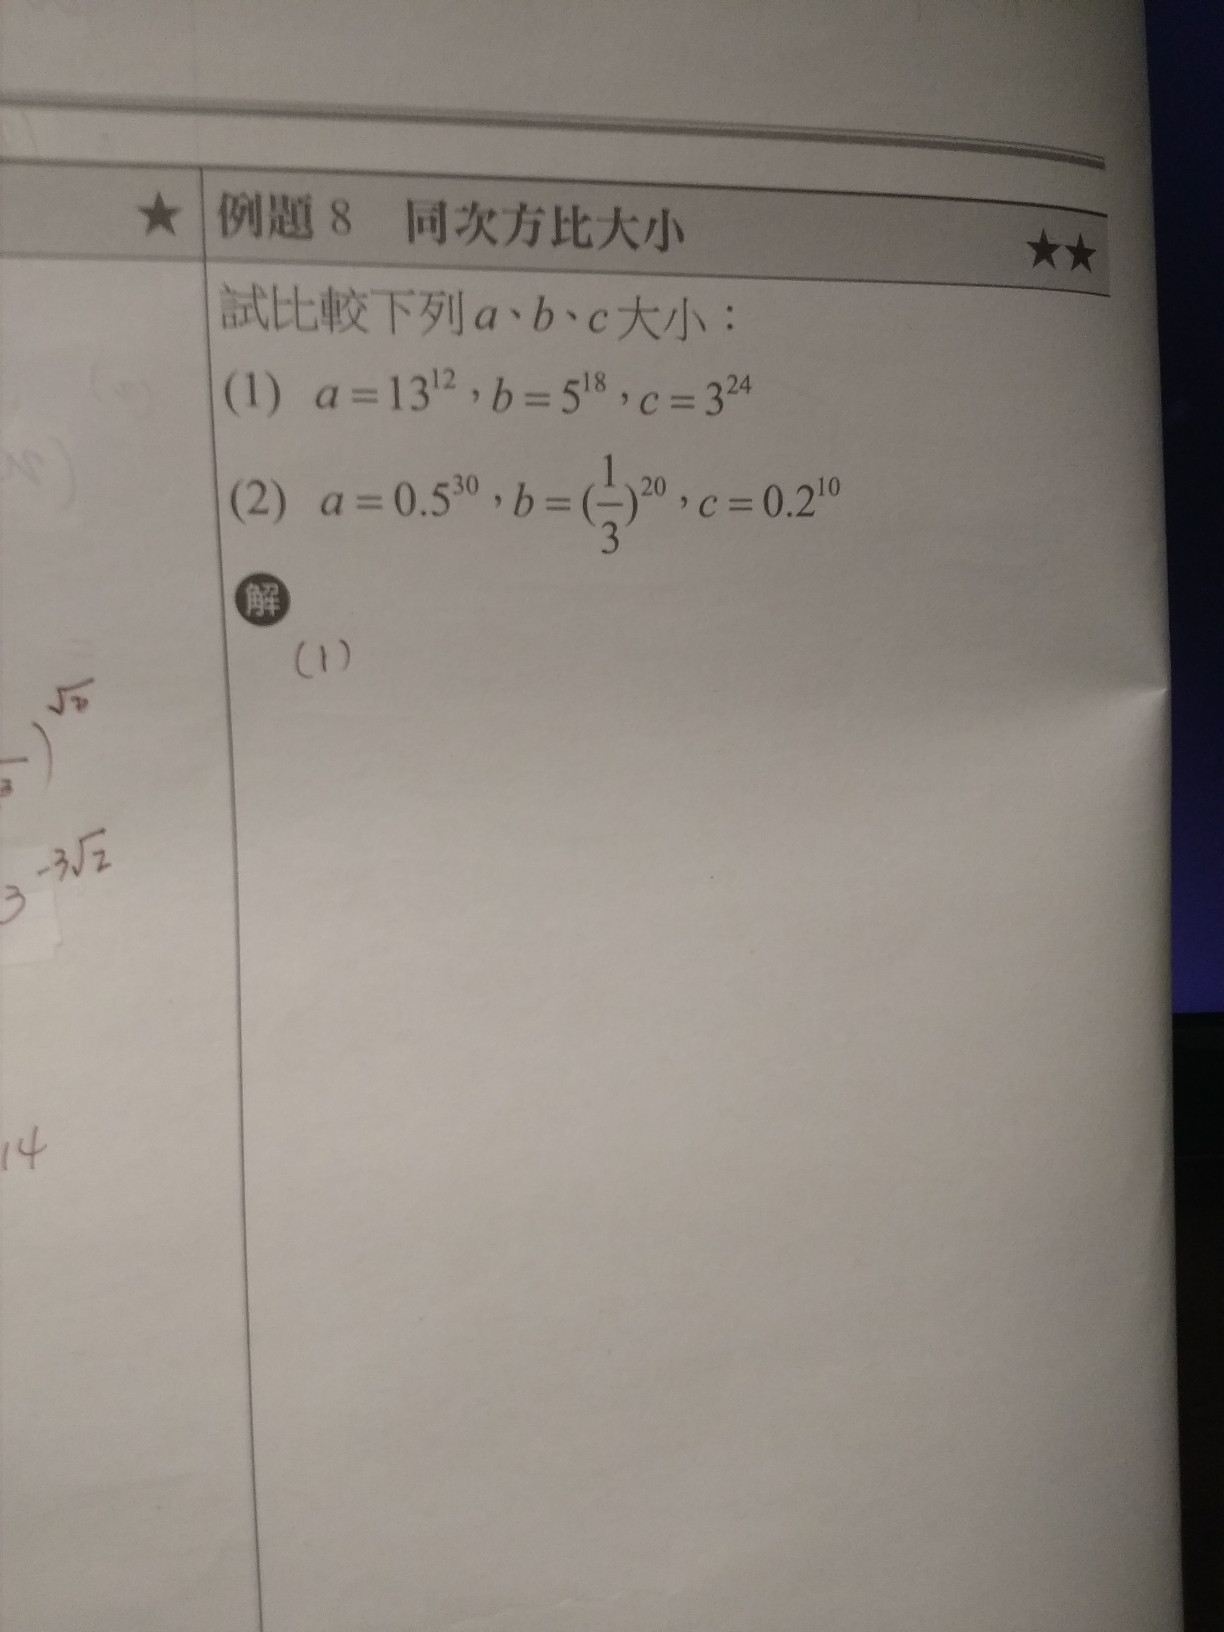 ★
例題 8 同次方比大小 ★★
試比較下列 a、b、c 大小：
(1) a = 13^12，b = 5^18，c = 3^24
(2) a = 0.5^30，b = (1/3)^20，c = 0.2^10
解
(1)
3)^√2
3^-3√2
14